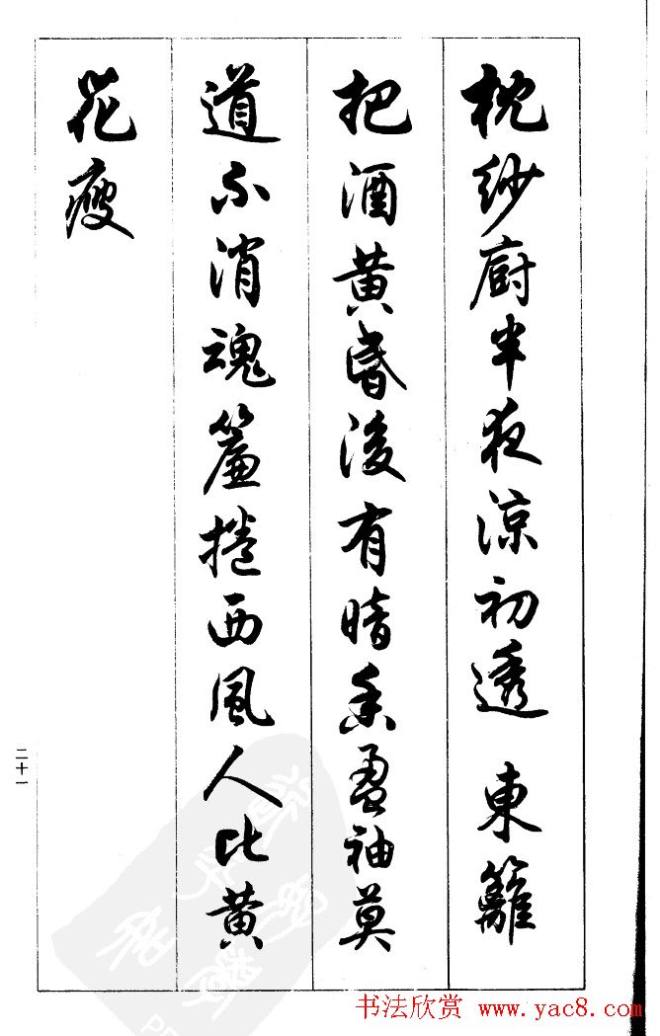 枕紗廚半夜涼初透 東籬
把酒黃昏後有暗香盈袖莫
道不消魂簾捲西風人比黃
花瘦
二十一
书法欣赏 www.yac8.com